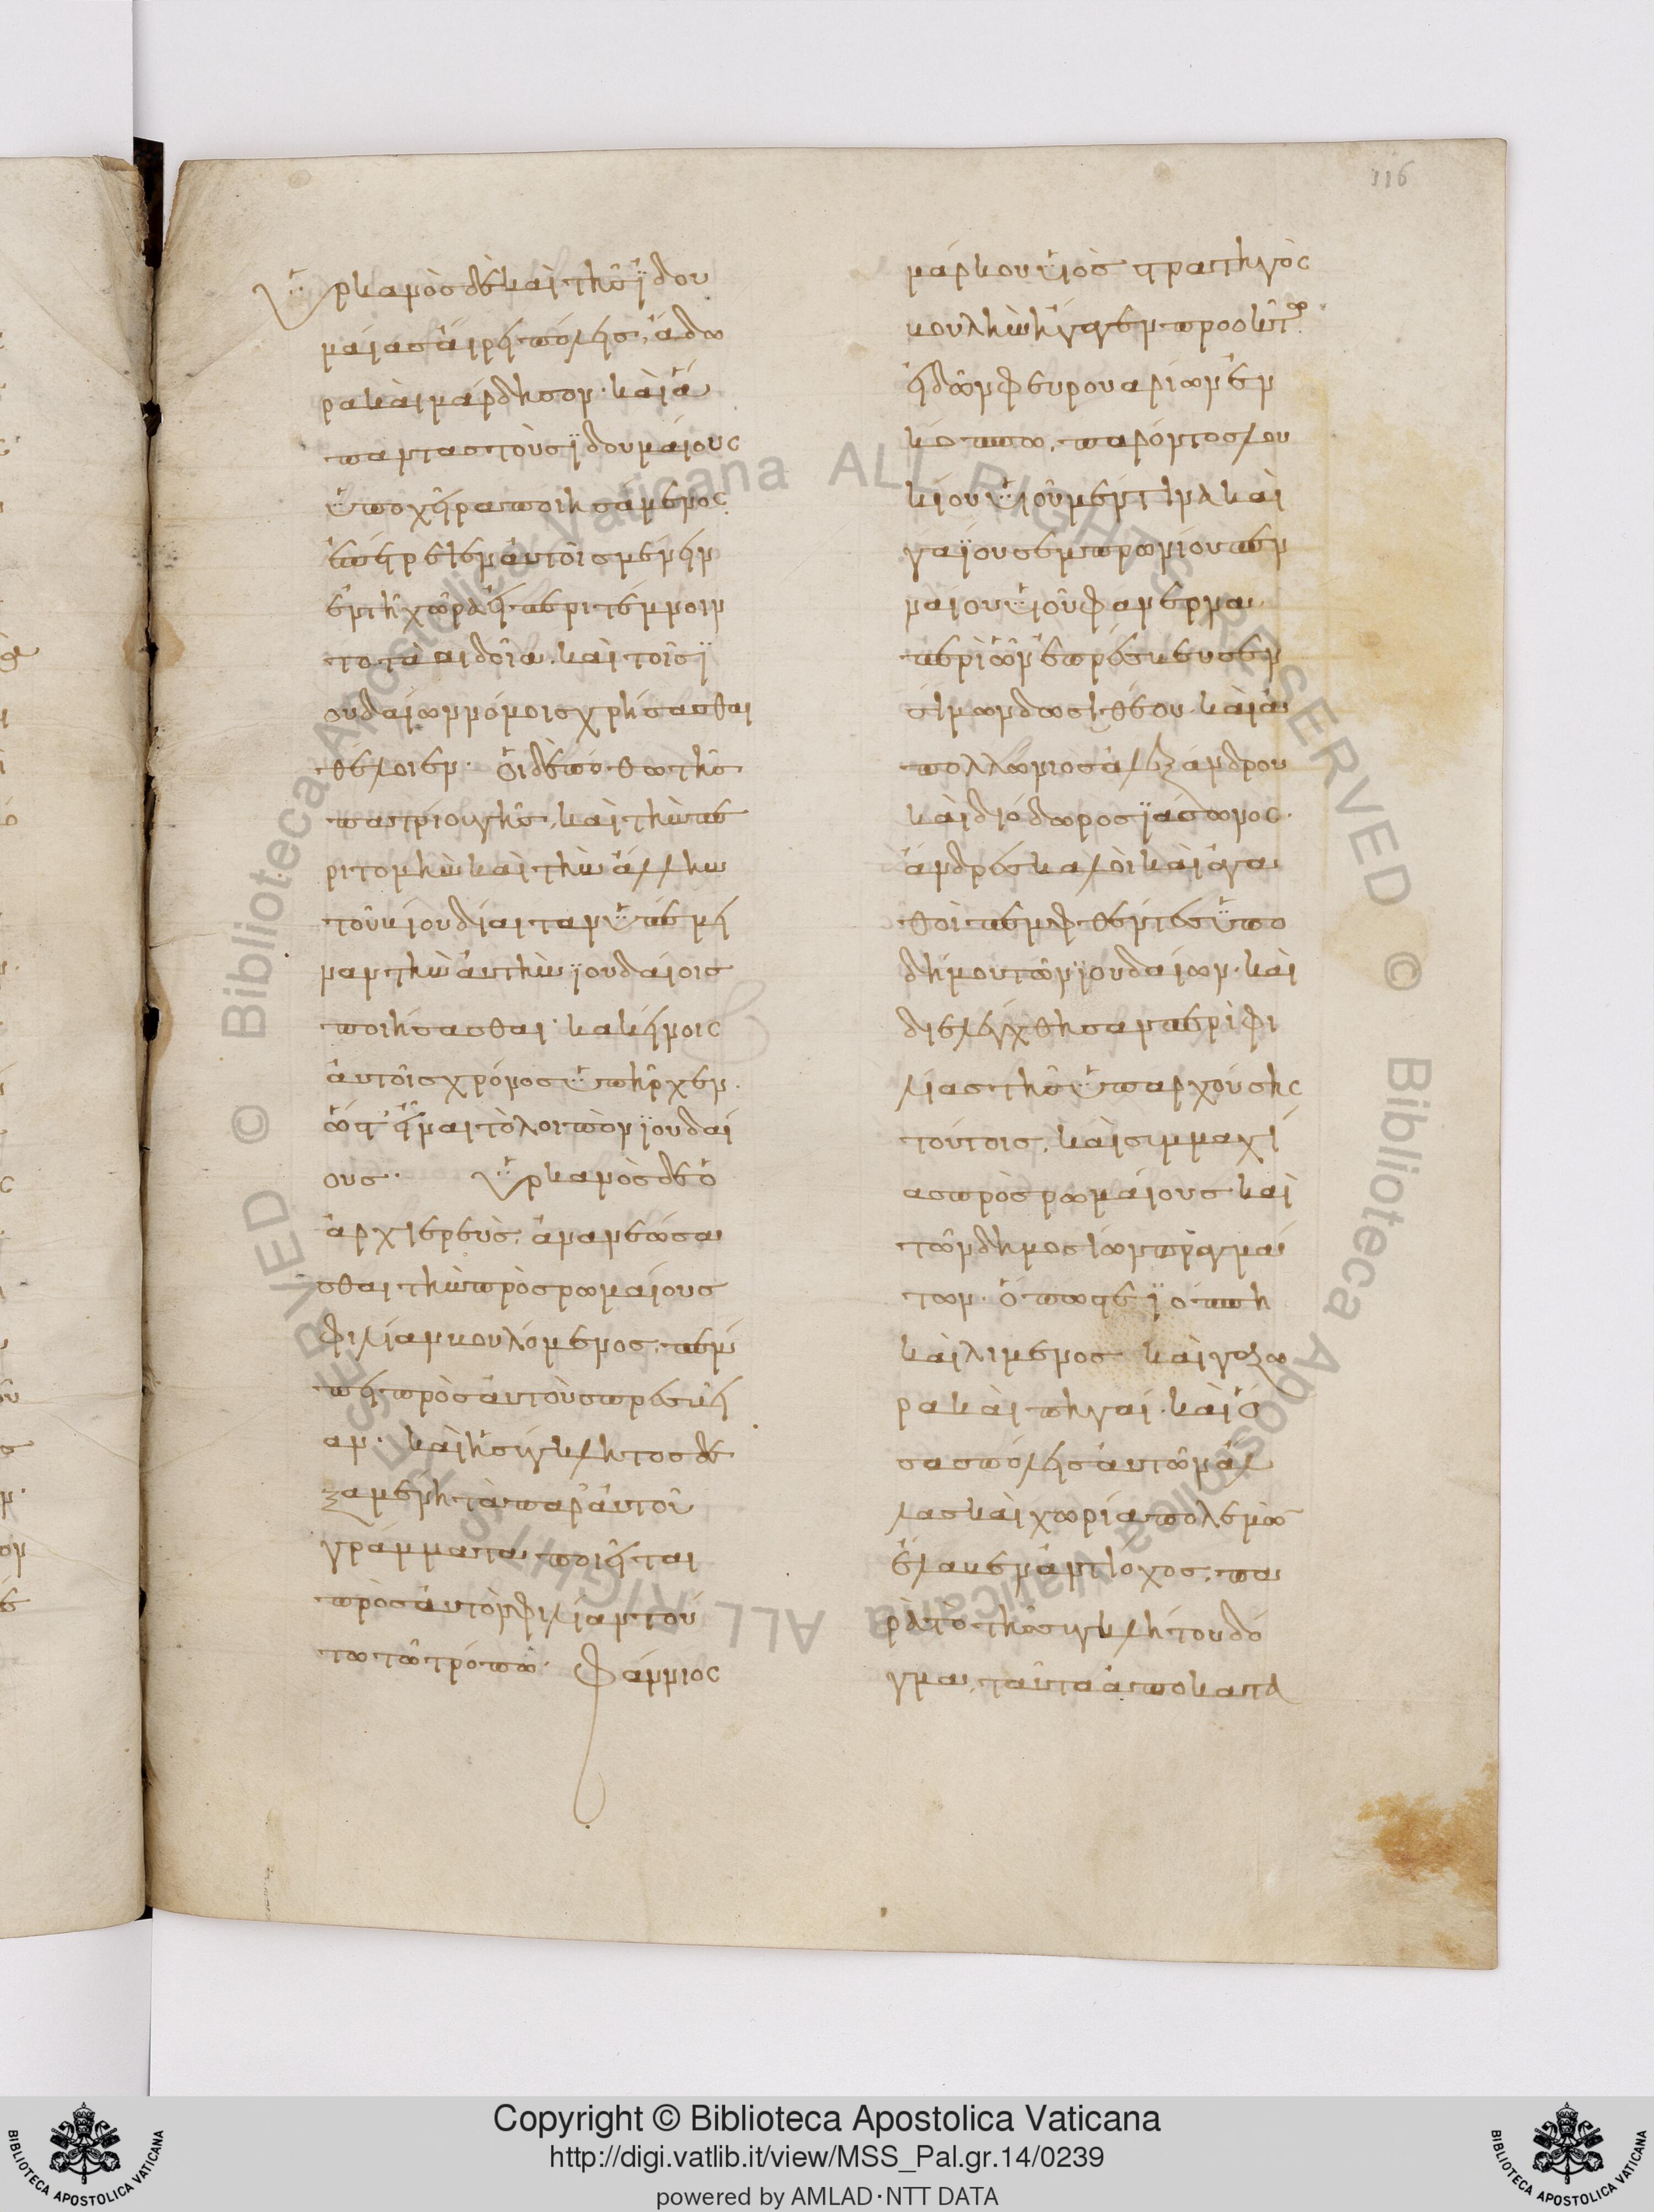 116
ὑρκανὸς δὲ καὶ τῆς ἰδου
μαίας αἱρεῖ πόλεις, ἄδω
ρα καὶ μάρδησον· καὶ ἅ
παντας τοὺς ἰδουμαίους
ὑπο χεῖρα ποιησάμενος
ἐπέτρεψεν αὐτοῖς μένειν
ἐν τῆ χώρα εἰ περιτέμνοιν
το τὰ αἰδοῖα. καὶ τοῖς ἰ
ουδαίων νόμοις χρήσασθαι
θέλοιεν. οἱ δὲ πόθω τῆς
πατρίου γῆς, καὶ τὴν πε
ριτομὴν καὶ τὴν ἄλλην
τοῦ βίου δίαιταν ὑπέμει
ναν τὴν αὐτὴν ἰουδαίοις
ποιήσασθαι· κακείνοις
αὐτοῖς χρόνος ὑπῆρχεν.
ὥστ' εἶναι τὸ λοιπὸν ἰουδαί
ους. ὑρκανὸς δὲ ὁ
ἀρχιερεὺς, ἀνανεώσα
σθαι τὴν πρὸς ρωμαίους
φιλίαν βουλόμενος, πέμ
πει πρὸς αὐτοὺς πρεσβεί
αν. καὶ ἡ σύγκλητος δε
ξαμένη τὰ παρ' αὐτοῦ
γράμματα ποιεῖται
πρὸς αὐτὸν φιλίαν τού
τω τῶ τρόπω. Φάννιος
μάρκου ὑιὸς στρατηγὸς
βουλὴν ἤγαγεν προ ὀκτὼ
εἰδῶν φευρουαρίων ἐν
κο πιω, παρόντος λου
κίου ὑιοῦ μεντινα καὶ
γαΐου σεμπρωνίου πεν
ναίου ὑιοῦ φαμερνα
περὶ ὧν ἐπρέσβευσεν
σίμων δωσιθέου. καὶ ἀ
πολλώνιος ἀλεξάνδρου
καὶ διόδωρος ἰάσωνος.
ἄνδρες καλοὶ καὶ ἀγα
θοὶ πεμφθέντες ὑπο
δήμου τῶν ἰουδαίων. καὶ
διελέχθησαν περὶ φι
λίας τῆς ὑπαρχούσης
τούτοις, καὶ συμμαχί
ας πρὸς ρωμαίους καὶ
τῶν δημοσίων πραγμά
των. ὅπως τε ἰόππη
καὶ λιμένος καὶ γαζω
ρα καὶ πηγαί. καὶ ὅ
σας πόλεις αὐτῶν ἄλ
λας καὶ χωρία πολεμῶν
ἔλαβεν ἀντίοχος, πα
ρὰ τὸ τῆς συγκλήτου δό
γμα, ταῦτα ἀποκαστα
Copyright © Biblioteca Apostolica Vaticana
http://digi.vatlib.it/view/MSS_Pal.gr.14/0239
powered by AMLAD·NTT DATA